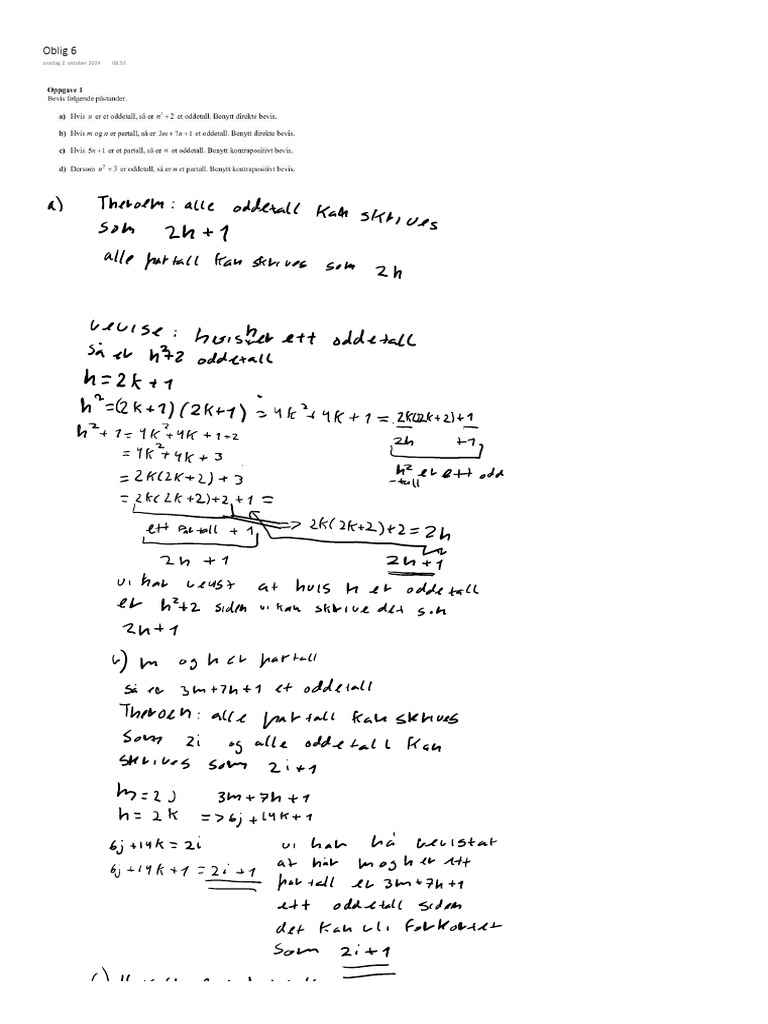 Oblig 6
onsdag 2. oktober 2024 08.53
Oppgave 1
Bevis følgende påstander.
a) Hvis n er et oddetall, så er n² + 2 et oddetall. Benytt direkte bevis.
b) Hvis m og n er partall, så er 3m + 7n + 1 et oddetall. Benytt direkte bevis.
c) Hvis 5n + 1 er et partall, så er n et oddetall. Benytt kontrapositivt bevis.
d) Dersom n² + 3 er oddetall, så er n et partall. Benytt kontrapositivt bevis.
a) Theroem: alle oddetall kan skrives
som 2n+1
alle partall kan skrives som 2n
bevise: hvis n er ett oddetall
så er n²+2 oddetall
n = 2k+1
n² = (2k+1)(2k+1) = 4k²+4k+1 = 2k(2k+2)+1
2n +1
n² er ett odd
-tall
n²+1 = 4k²+4k+1+2
= 4k²+4k+3
= 2k(2k+2)+3
= 2k(2k+2)+2+1 =
ett partall + 1 => 2k(2k+2)+2 = 2n
2n +1 2n+1
vi har bevist at hvis n er oddetall
er n²+2 siden vi kan skrive det som
2n+1
b) m og n er partall
så er 3m+7n+1 et oddetall
Theroem: alle partall kan skrives
som 2i og alle oddetall kan
skrives som 2i+1
m = 2j 3m+7n+1
n = 2k => 6j+14k+1
6j+14k = 2i
6j+14k+1 = 2i+1
vi har nå bevist at
at når m og n er ett
partall er 3m+7n+1
ett oddetall siden
det kan bli forkortet
som 2i+1